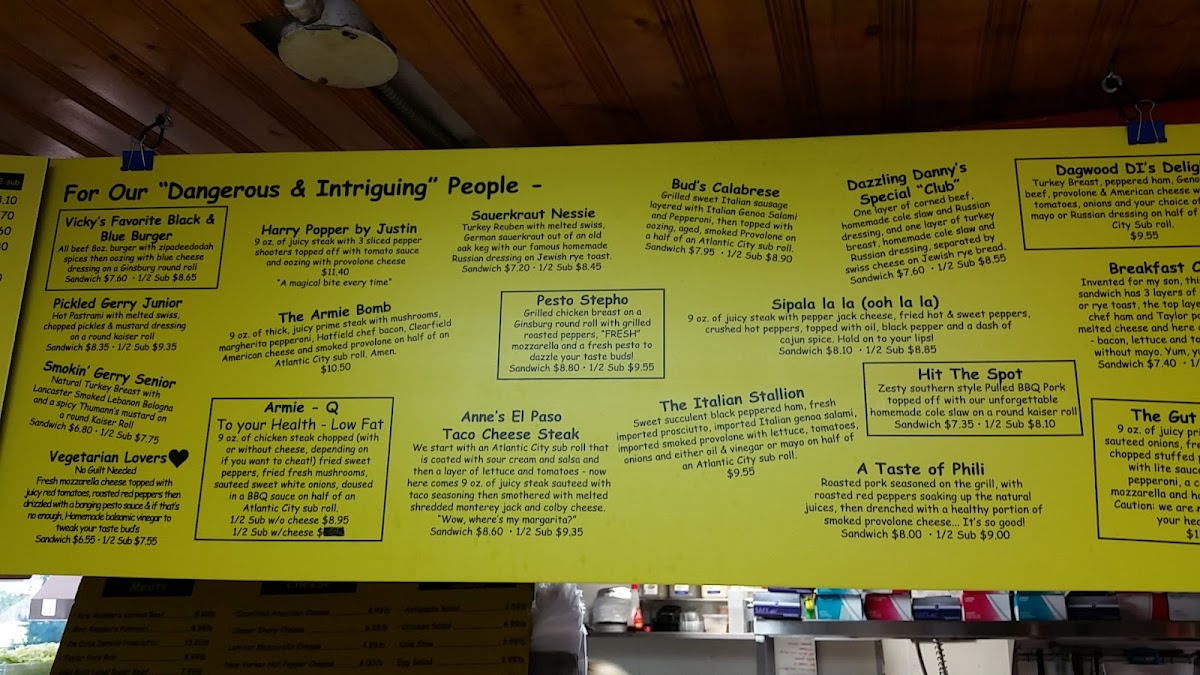 For Our "Dangerous & Intriguing" People -
Vicky's Favorite Black &
Blue Burger
All beef 8oz. burger with zipadeedodah
spices then oozing with blue cheese
dressing on a Ginsburg round roll
Sandwich $7.60 · 1/2 Sub $8.65
Pickled Gerry Junior
Hot Pastrami with melted swiss,
chopped pickles & mustard dressing
on a round kaiser roll
Sandwich $8.35 · 1/2 Sub $9.35
Smokin' Gerry Senior
Natural Turkey Breast with
Lancaster Smoked Lebanon Bologna
and a spicy Thumann's mustard on
a round Kaiser Roll
Sandwich $6.80 · 1/2 Sub $7.75
Vegetarian Lovers
No Guilt Needed
Fresh mozzarella cheese topped with
juicy red tomatoes, roasted red peppers then
drizzled with a banging pesto sauce & if that's
no enough, Homemade balsamic vinegar to
tweak your taste bud's
Sandwich $6.55 · 1/2 Sub $7.55
Harry Popper by Justin
9 oz. of juicy steak with 3 sliced pepper
shooters topped off with tomato sauce
and oozing with provolone cheese
$11.40
"A magical bite every time"
The Armie Bomb
9 oz. of thick, juicy prime steak with mushrooms,
margherita pepperoni, Hatfield chef bacon, Clearfield
American cheese and smoked provolone on half of an
Atlantic City sub roll. Amen.
$10.50
Armie - Q
To your Health - Low Fat
9 oz. of chicken steak chopped (with
or without cheese, depending on
if you want to cheat!) fried sweet
peppers, fried fresh mushrooms,
sauteed sweet white onions, doused
in a BBQ sauce on half of an
Atlantic City sub roll.
1/2 Sub w/o cheese $8.95
1/2 Sub w/cheese $
Sauerkraut Nessie
Turkey Reuben with melted swiss,
German sauerkraut out of an old
oak keg with our famous homemade
Russian dressing on Jewish rye toast.
Sandwich $7.20 · 1/2 Sub $8.45
Pesto Stepho
Grilled chicken breast on a
Ginsburg round roll with grilled
roasted peppers, "FRESH"
mozzarella and a fresh pesto to
dazzle your taste buds!
Sandwich $8.80 · 1/2 Sub $9.55
Anne's El Paso
Taco Cheese Steak
We start with an Atlantic City sub roll that
is coated with sour cream and salsa and
then a layer of lettuce and tomatoes - now
here comes 9 oz. of juicy steak sauteed with
taco seasoning then smothered with melted
shredded monterey jack and colby cheese.
"Wow, where's my margarita?"
Sandwich $8.60 · 1/2 Sub $9.35
Bud's Calabrese
Grilled sweet Italian sausage
layered with Italian Genoa Salami
and Pepperoni, then topped with
oozing, aged, smoked Provolone on
a half of an Atlantic City sub roll.
Sandwich $7.95 · 1/2 Sub $8.90
Dazzling Danny's
Special "Club"
One layer of corned beef,
homemade cole slaw and Russian
dressing, and one layer of turkey
breast, homemade cole slaw and
Russian dressing, separated by
swiss cheese on Jewish rye bread.
Sandwich $7.60 · 1/2 Sub $8.55
Sipala la la (ooh la la)
9 oz. of juicy steak with pepper jack cheese, fried hot & sweet peppers,
crushed hot peppers, topped with oil, black pepper and a dash of
cajun spice. Hold on to your lips!
Sandwich $8.10 · 1/2 Sub $8.85
The Italian Stallion
Sweet succulent black peppered ham, fresh
imported prosciutto, imported Italian genoa salami,
imported smoked provolone with lettuce, tomatoes,
onions and either oil & vinegar or mayo on half of
an Atlantic City sub roll.
$9.55
Hit The Spot
Zesty southern style Pulled BBQ Pork
topped off with our unforgettable
homemade cole slaw on a round kaiser roll
Sandwich $7.35 · 1/2 Sub $8.10
A Taste of Phili
Roasted pork seasoned on the grill, with
roasted red peppers soaking up the natural
juices, then drenched with a healthy portion of
smoked provolone cheese... It's so good!
Sandwich $8.00 · 1/2 Sub $9.00
Dagwood DI's Delig
Turkey Breast, peppered ham, Geno
beef, provolone & American cheese w
tomatoes, onions and your choice of
mayo or Russian dressing on half of
City Sub roll.
$9.55
Breakfast C
Invented for my son, thi
sandwich has 3 layers of
or rye toast, the top laye
chef ham and Taylor po
melted cheese and here
- bacon, lettuce and to
without mayo. Yum, y
Sandwich $7.40 · 1/
The Gut
9 oz. of juicy pri
sauteed onions, fre
chopped stuffed p
with lite sauce
pepperoni, a c
mozzarella and h
Caution: we are n
your he
$1
Meats
Cheese